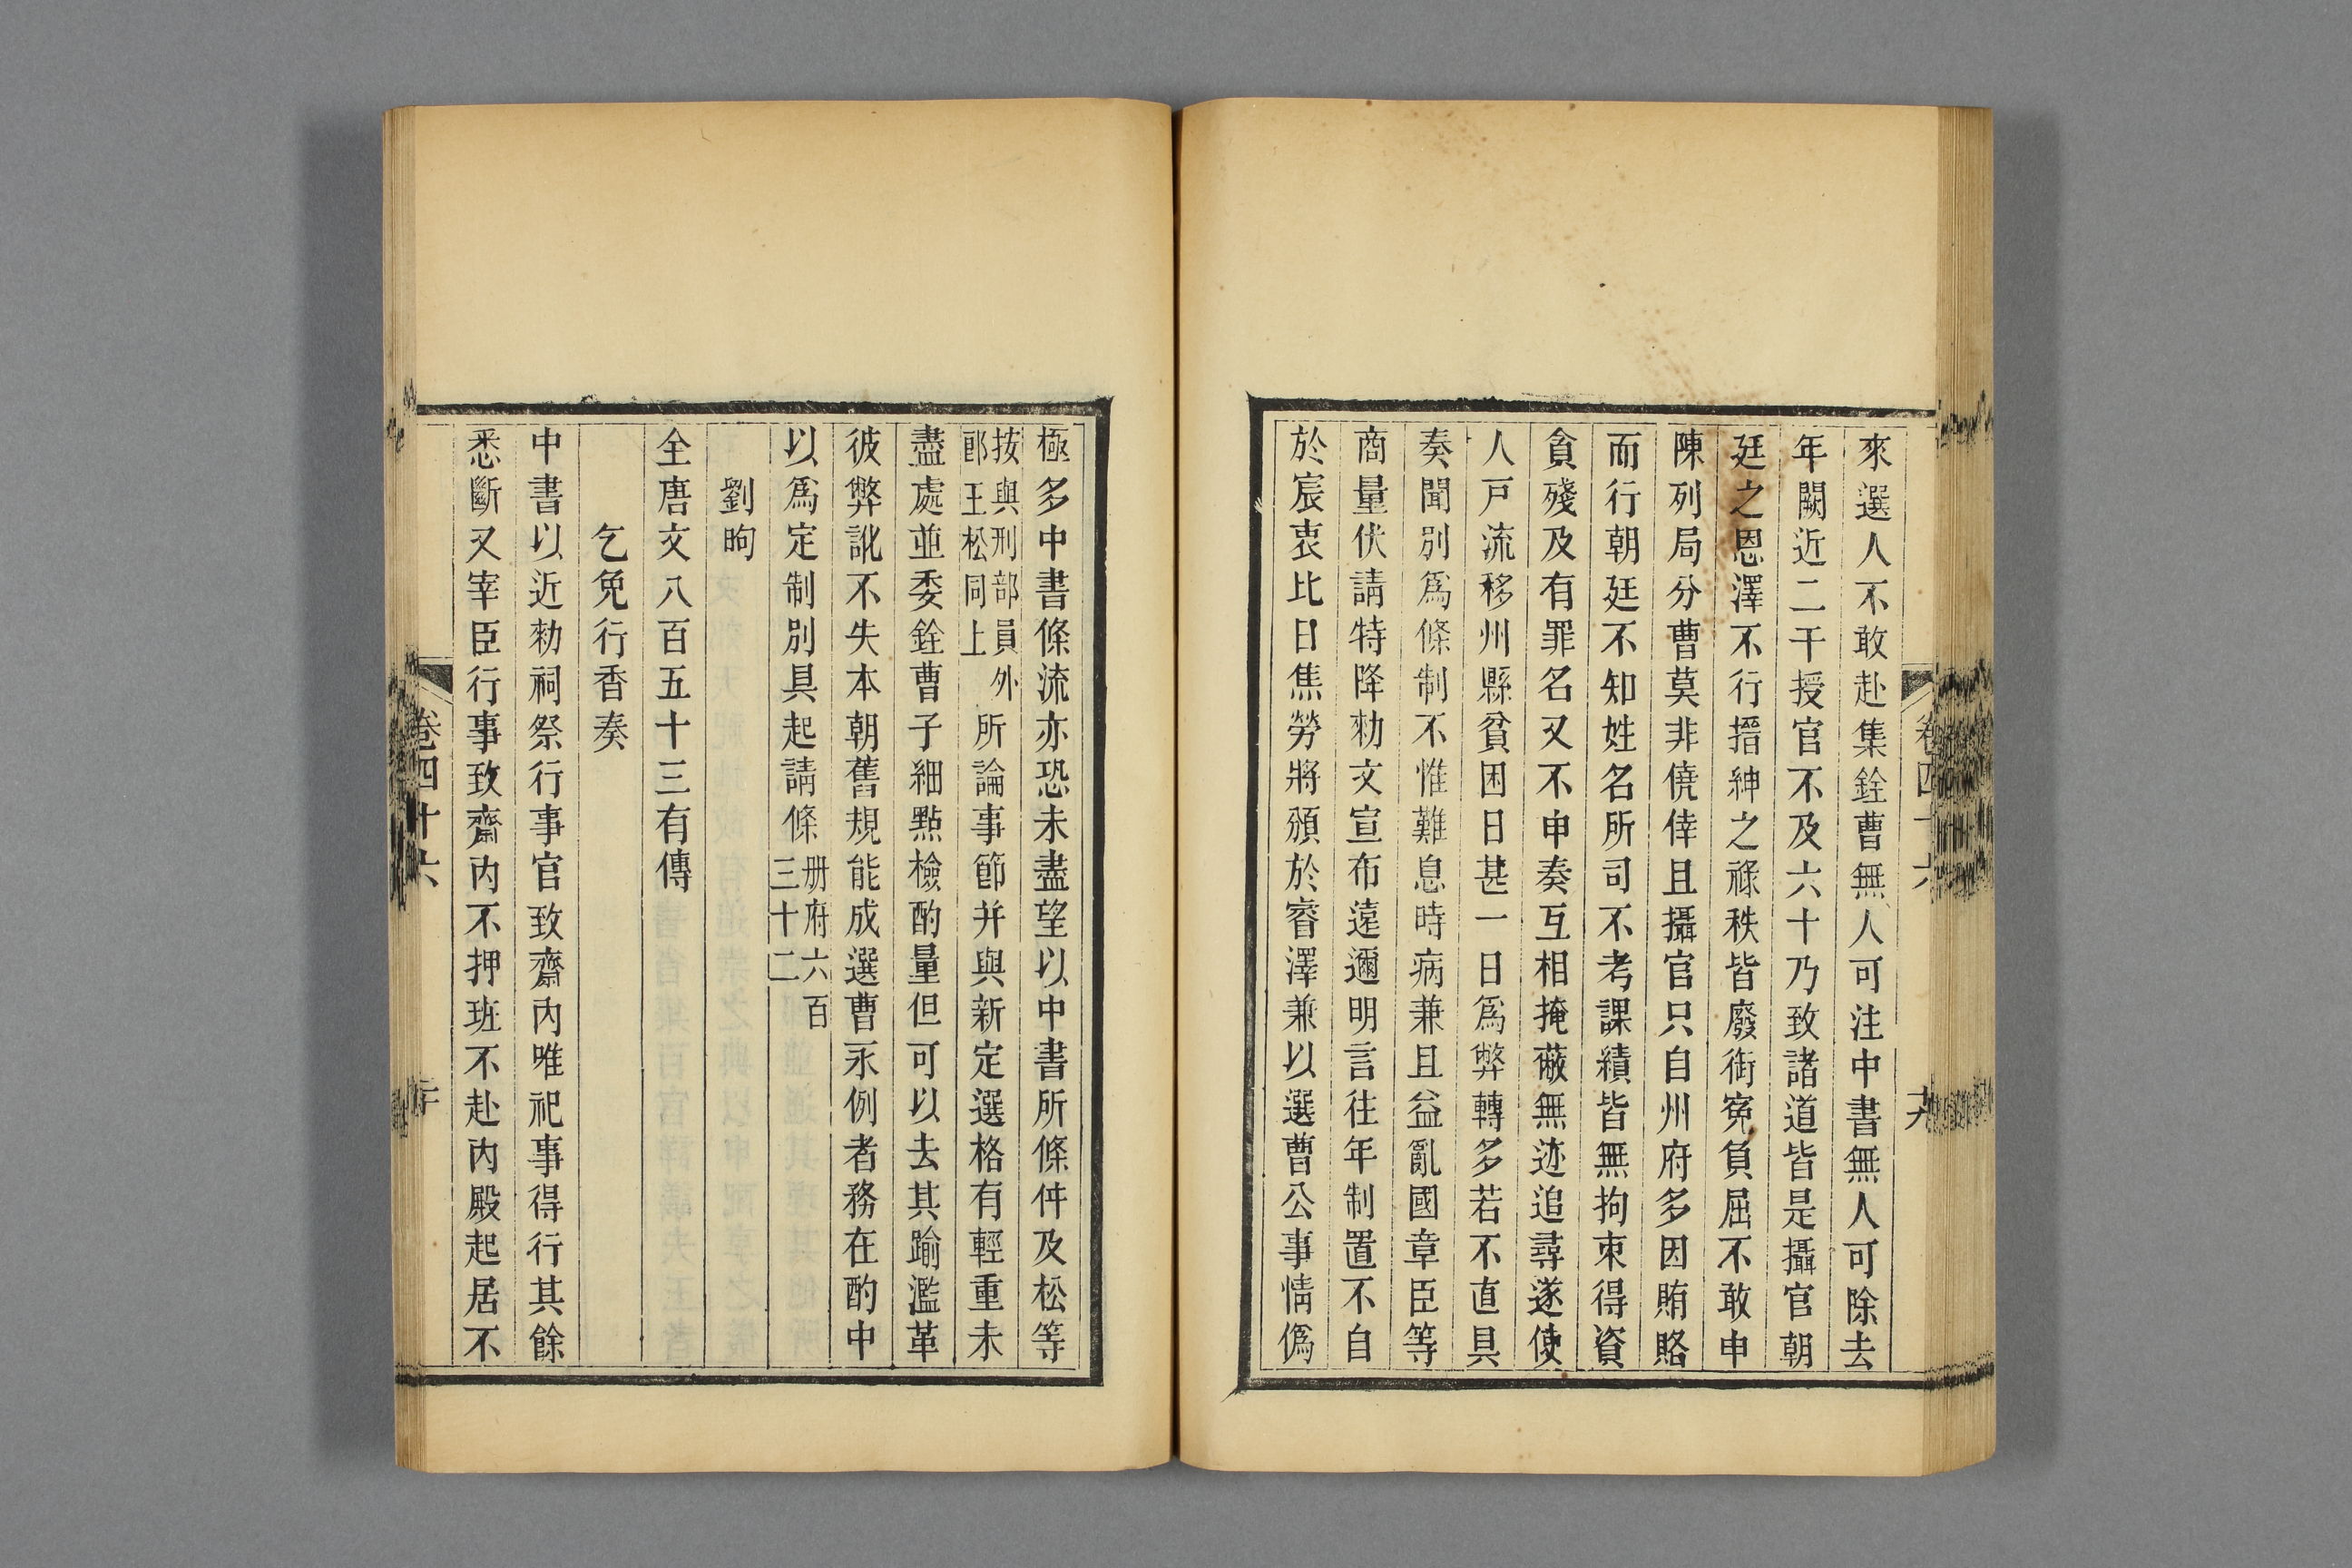 來選人不敢赴集銓曹無人可注中書無人可除去
年闕近二千授官不及六十乃致諸道皆是攝官朝
廷之恩澤不行搢紳之祿秩皆廢銜寃負屈不敢申
陳列局分曹莫非僥倖且攝官只自州府多因賄賂
而行朝廷不知姓名所司不考課績皆無拘束得資
貪殘及有罪名又不申奏互相掩蔽無迹追尋遂使
人戸流移州縣貧困日甚一日爲弊轉多若不直具
奏聞別爲條制不惟難息時病兼且益亂國章臣等
商量伏請特降勑文宣布遠邇明言往年制置不自
於宸衷比日焦勞將頒於睿澤兼以選曹公事情僞
極多中書條流亦恐未盡望以中書所條件及松等
按與刑部員外
郎王松同上
所論事節并與新定選格有輕重未
盡處並委銓曹子細點檢酌量但可以去其踰濫革
彼弊訛不失本朝舊規能成選曹永例者務在酌中
以爲定制別具起請條
册府六百
三十二
劉昫
全唐文八百五十三有傳
乞免行香奏
中書以近勑祠祭行事官致齋內唯祀事得行其餘
悉斷又宰臣行事致齋內不押班不赴內殿起居不
卷四十六